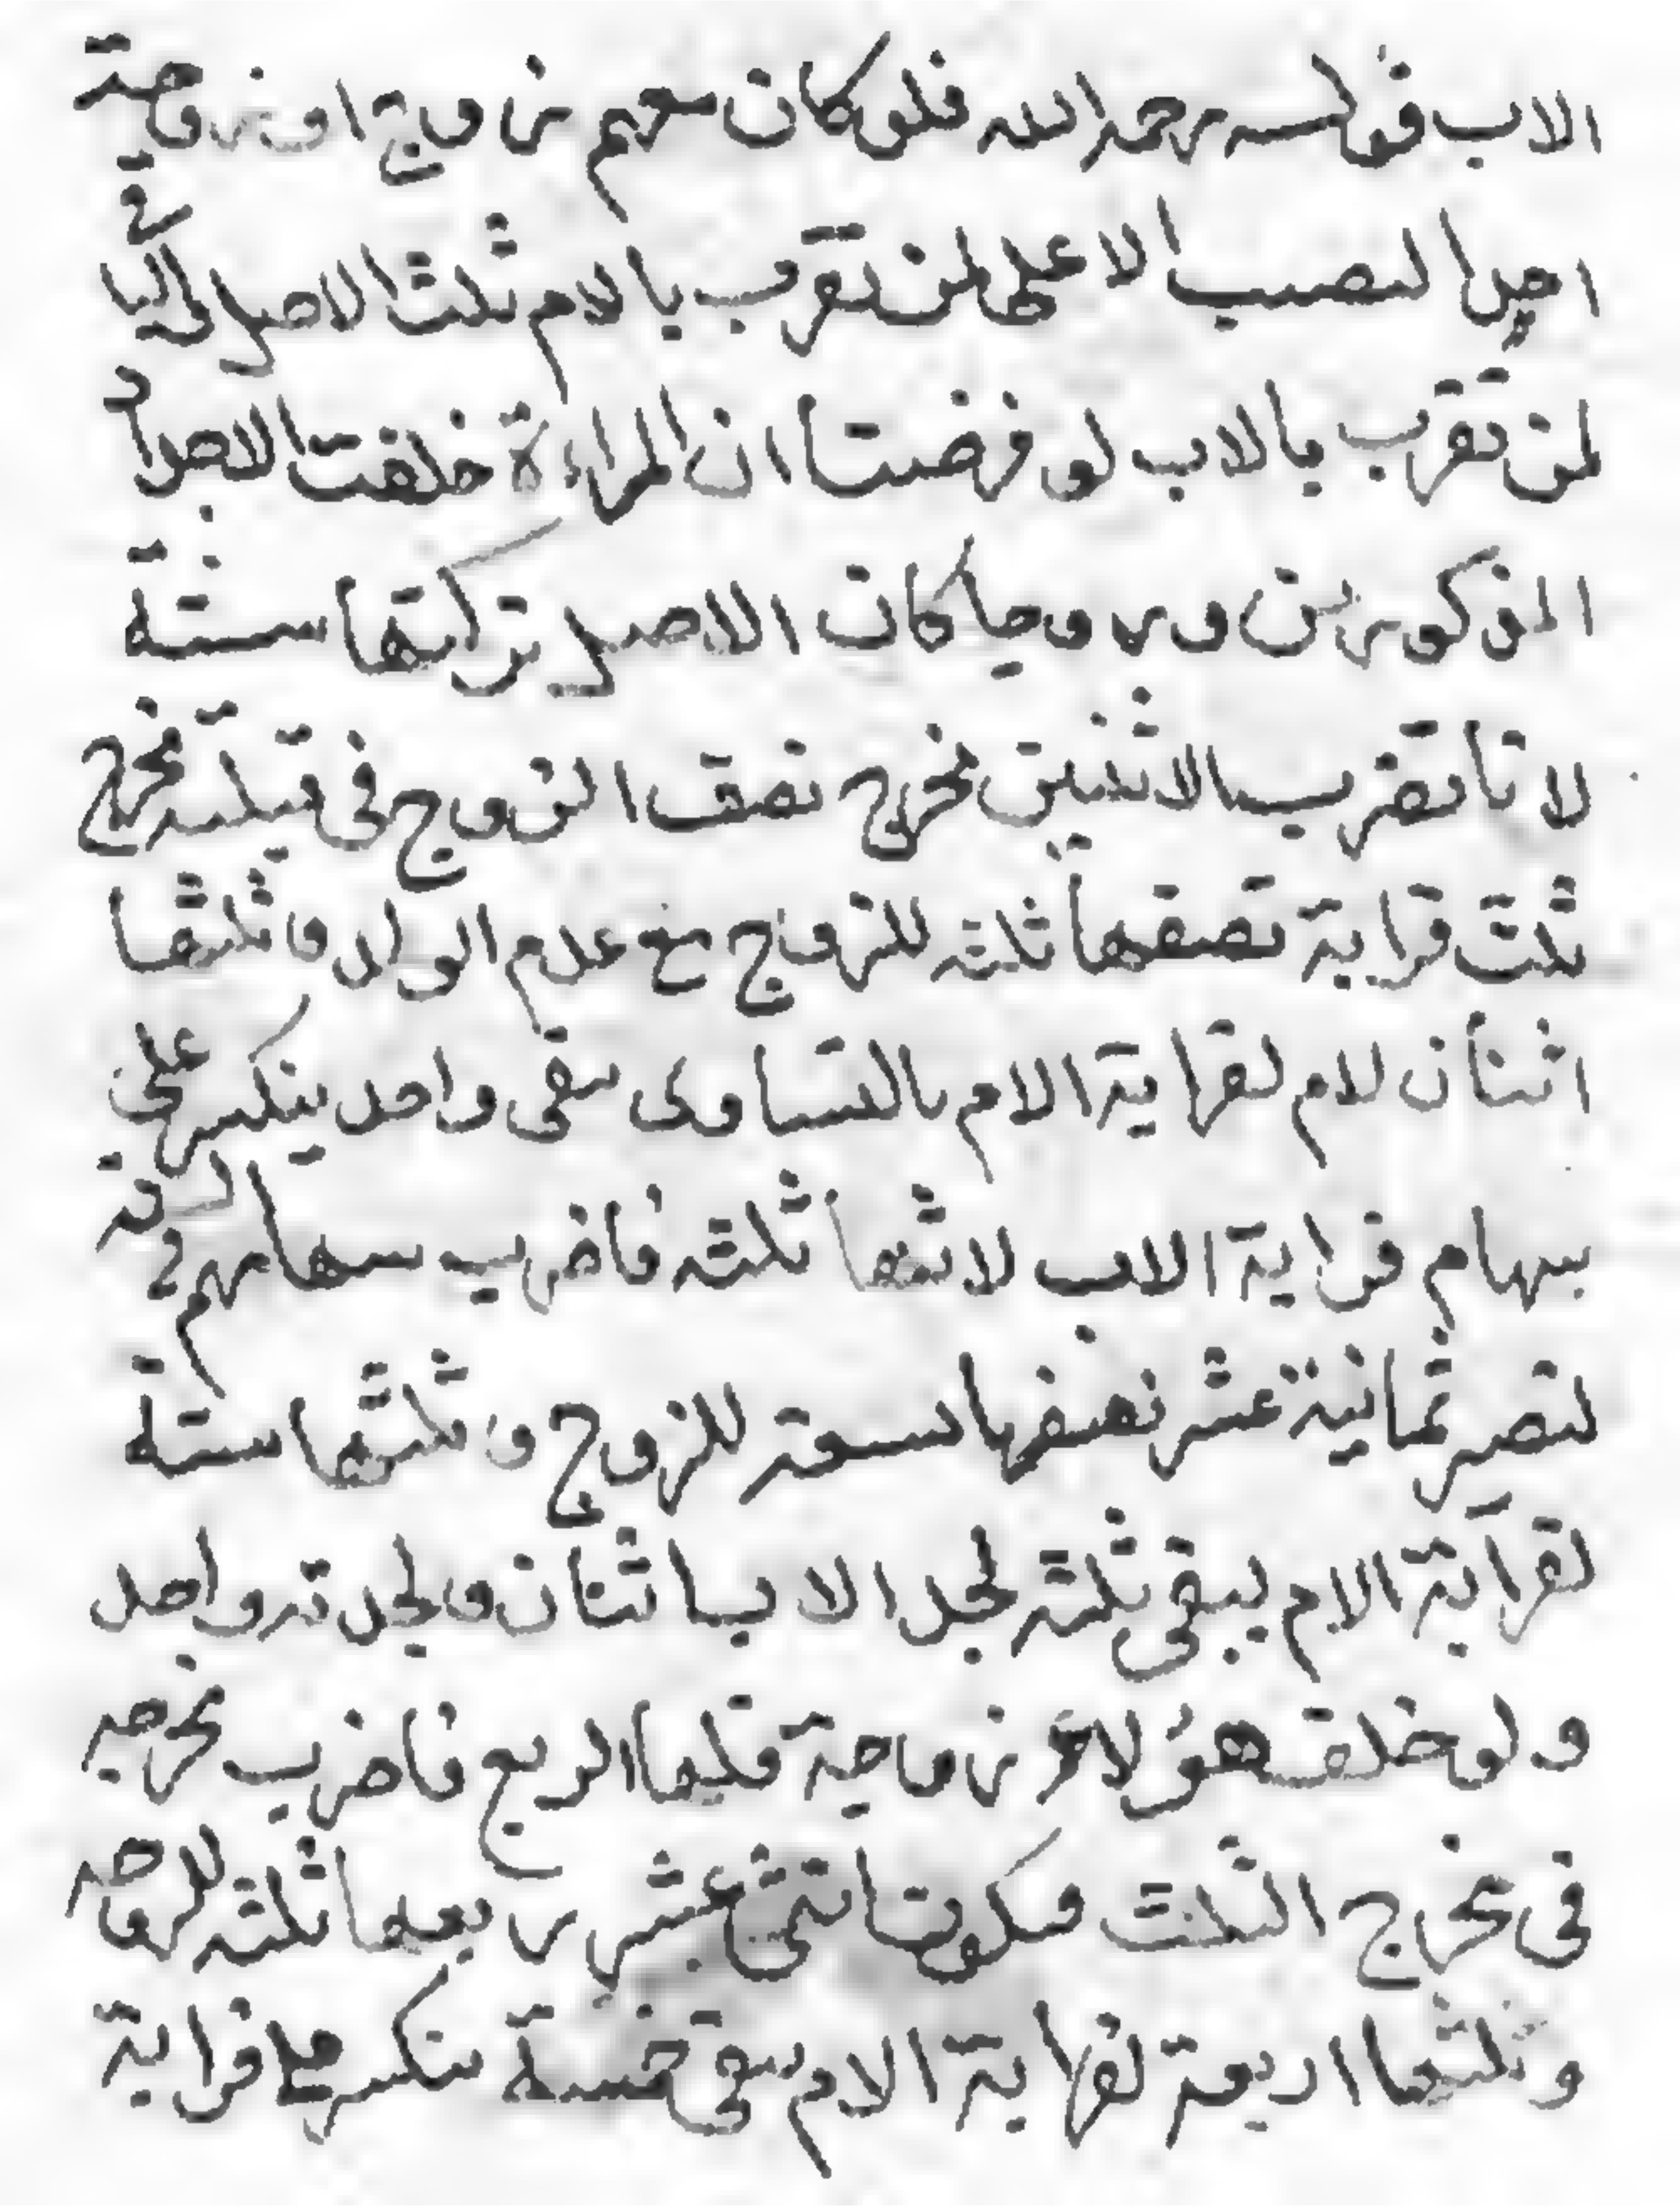 الاب قوله رحمه الله فلو كان معهم زوج او زوجة
اخذ النصيب الاعلى ولمن تقرب بالام ثلث الاصل والباقى
لمن تقرب بالاب لو فرضنا ان المراءة خلفت الاجداد
المذكورين وزوجا كان الاصل تركتها ستة
لانا نضرب الاثنين مخرج نصف الزوج فى ثلثة مخرج
ثلث قرابة نصفها ثلثة للزوج مع عدم الولد وثلثها
اثنان للام لقرابة الام بالتساوى يبقى واحد ينكسر على
سهام قرابة الاب لانها ثلثة فاضرب سهامهم فى ستة
لتصير ثمانية عشر نصفها تسعة للزوج وثلثها ستة
لقرابة الام يبقى ثلثة لجد الاب اثنان ولجدته واحد
ولو خلف هؤلاء زوجة فلها الربع فاضرب مخرجه
فى مخرج الثلث فيكون اثنى عشر ربعها ثلثة للزوجه
وثلثها اربعة لقرابة الام يبقى خمسة ينكسر على قرابة